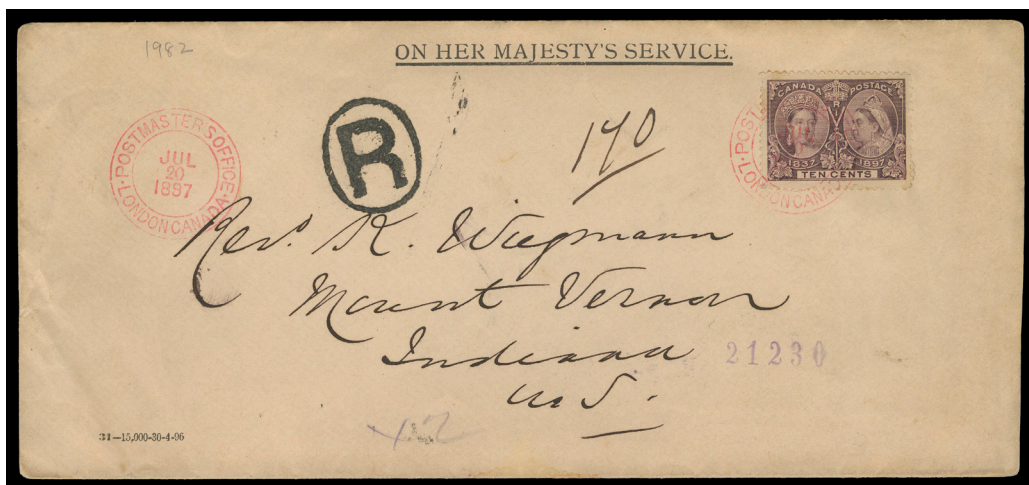 1982
ON HER MAJESTY'S SERVICE.
POSTMASTER'S OFFICE
JUL
20
1897
LONDON CANADA
R
190
CANADA POSTAGE
V R
1837 1897
TEN CENTS
POST
LONDON CANADA
Revd. K. Wiegmann
Mount Vernon
Indiana
21230
U.S.
31—15,000-30-4-96